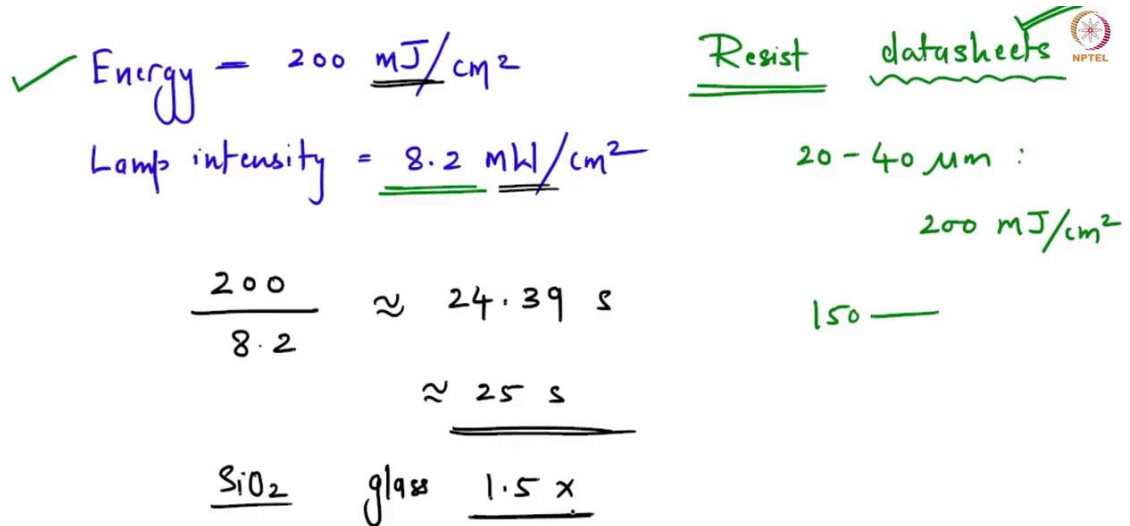 Energy = 200 mJ/cm²
Lamp intensity = 8.2 mW/cm²
200
8.2
≈ 24.39 s
≈ 25 s
SiO₂ glass 1.5 x
Resist datasheets
NPTEL
20 - 40 μm :
200 mJ/cm²
150 —